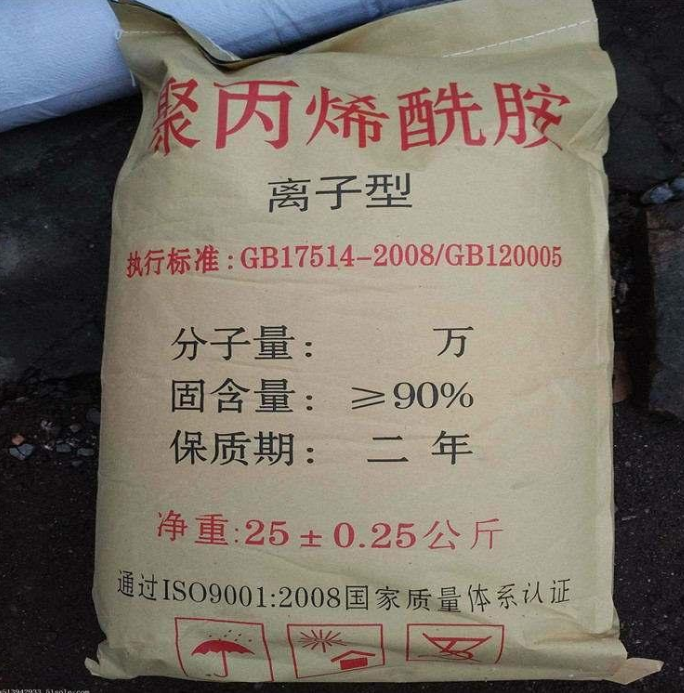 聚丙烯酰胺
离子型
执行标准:GB17514-2008/GB120005
分子量: 万
固含量: ≥90%
保质期: 二年
净重:25±0.25公斤
通过ISO9001:2008国家质量体系认证